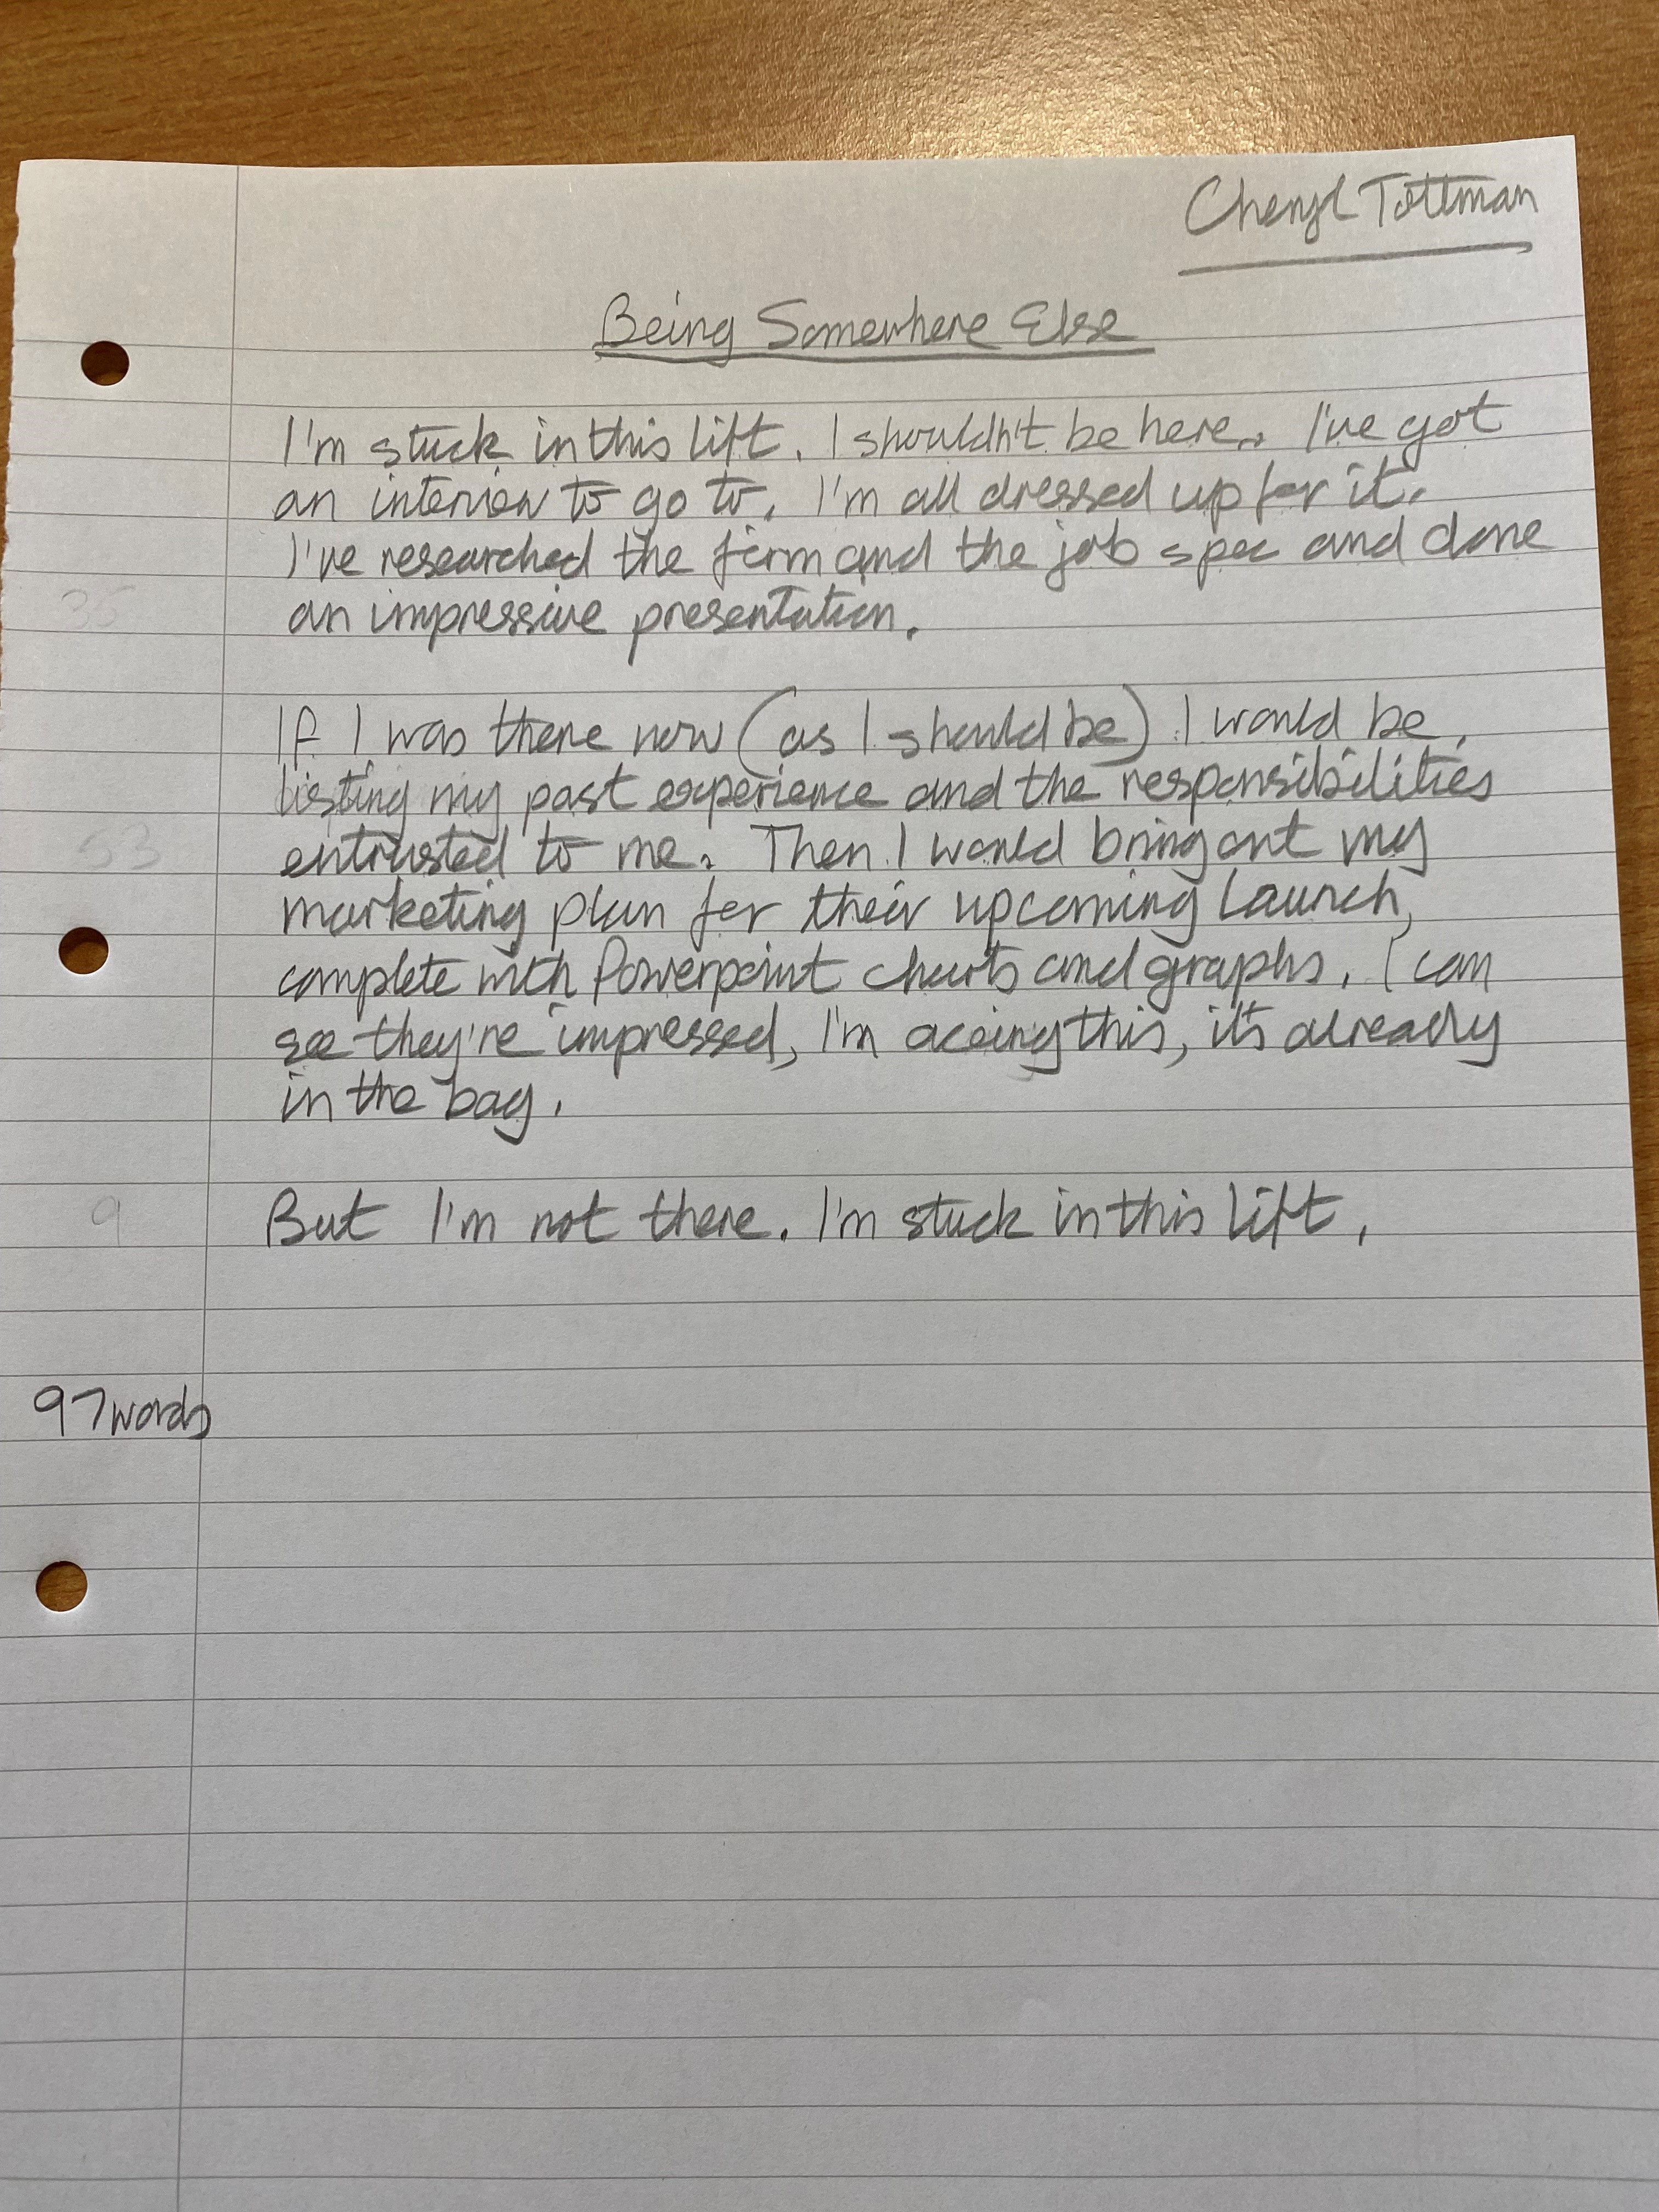 Cheryl Tottman
Being Somewhere Else
I'm stuck in this lift. I shouldn't be here. I've got
an interview to go to. I'm all dressed up for it.
I've researched the firm and the job spec and done
35
an impressive presentation.
If I was there now (as I should be) I would be
listing my past experience and the responsibilities
53
entrusted to me. Then I would bring out my
marketing plan for their upcoming launch,
complete with Powerpoint charts and graphs. I can
see they're impressed, I'm aceing this, it's already
in the bag.
9
But I'm not there. I'm stuck in this lift.
97 words